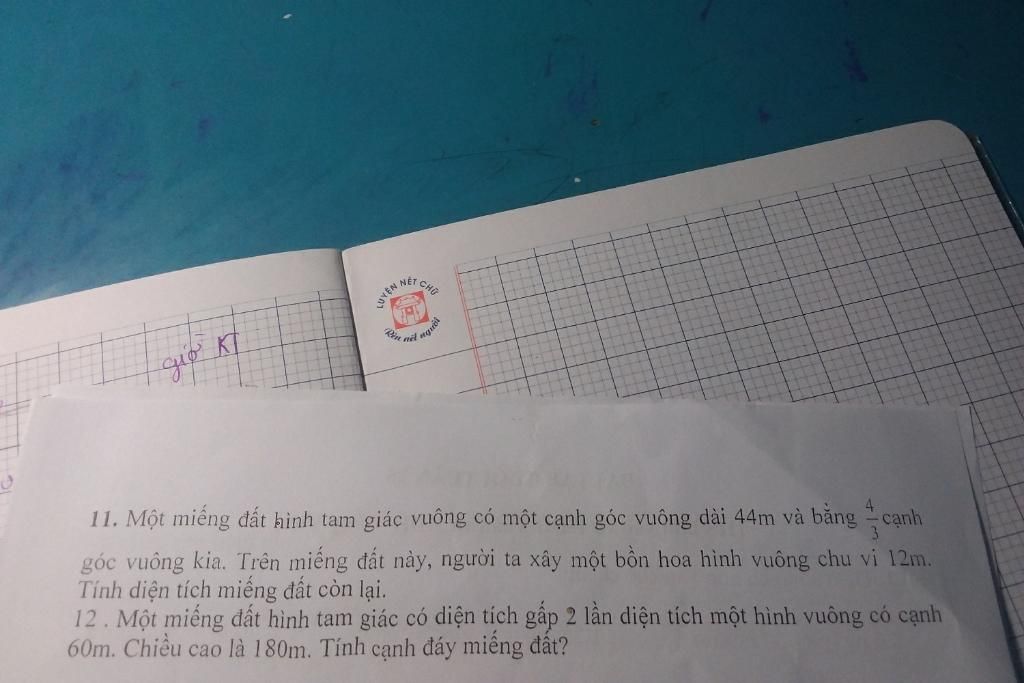 LUYỆN NÉT CHỮ
Rèn nết người
giờ KT
11. Một miếng đất hình tam giác vuông có một cạnh góc vuông dài 44m và bằng 4/3 cạnh
góc vuông kia. Trên miếng đất này, người ta xây một bồn hoa hình vuông chu vi 12m.
Tính diện tích miếng đất còn lại.
12 . Một miếng đất hình tam giác có diện tích gấp 2 lần diện tích một hình vuông có cạnh
60m. Chiều cao là 180m. Tính cạnh đáy miếng đất?